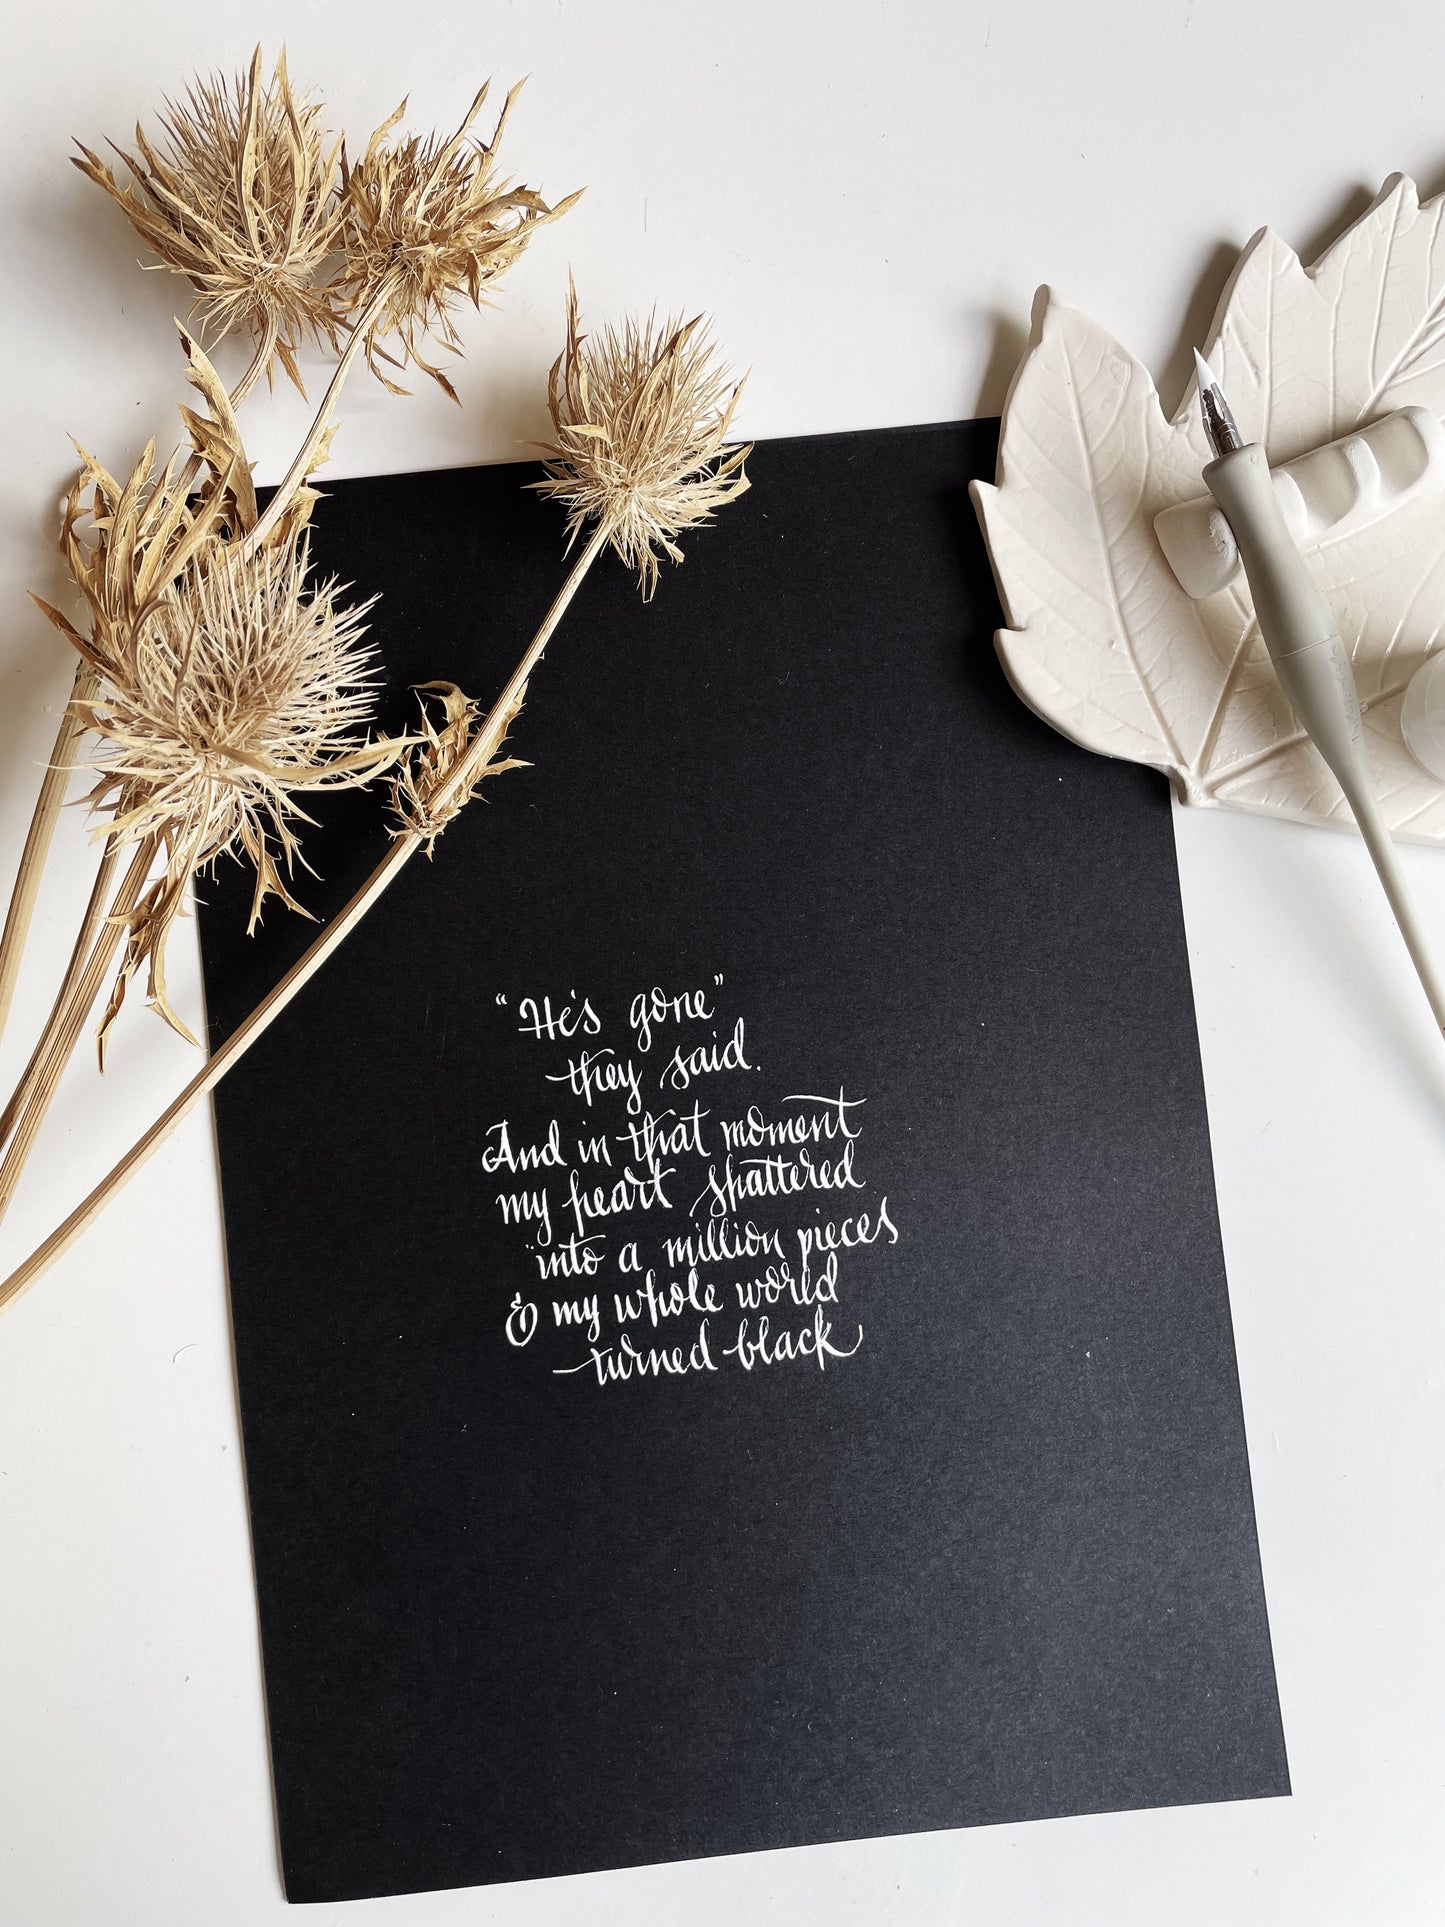 "He's gone"
they said.
And in that moment
my heart shattered
into a million pieces
& my whole world
turned black